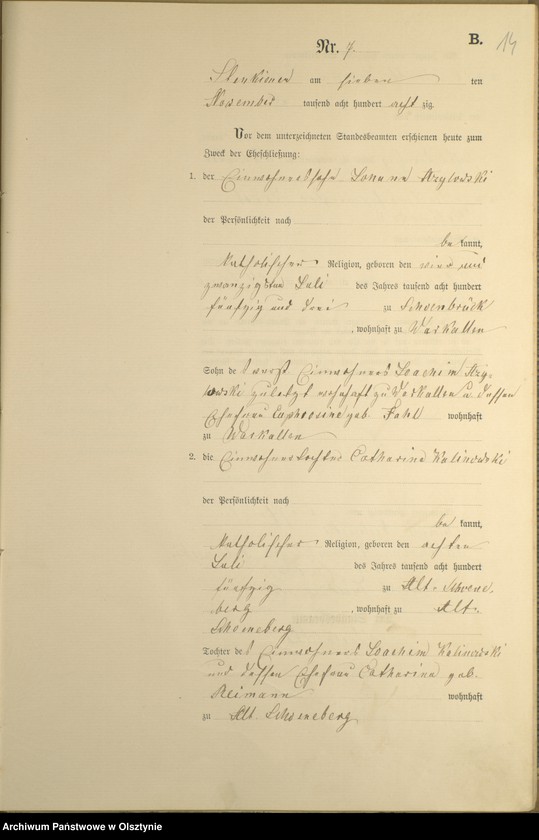 B. 14
Nr. 7.
am sieben ten
November tausend acht hundert acht zig.
Vor dem unterzeichneten Standesbeamten erschienen heute zum
Zweck der Eheschließung:
1. der Einwohnersohn
der Persönlichkeit nach
be kannt,
katholischer Religion, geboren den vier und
zwanzigsten Juli des Jahres tausend acht hundert
fünfzig und drei zu Schoenbrück
, wohnhaft zu Warkallen
Sohn de s verst. Einwohners Joachim
zuletzt wohnhaft zu Warkallen u. dessen
Ehefrau Euphrosine geb. Fahl wohnhaft
zu Warkallen
2. die Einwohnertochter Catharina Kalinowski
der Persönlichkeit nach
be kannt,
katholischer Religion, geboren den achten
Juli des Jahres tausend acht hundert
fünfzig zu Alt-Schoene-
berg , wohnhaft zu Alt-
Schoeneberg
Tochter de s Einwohners Joachim Kalinowski
und dessen Ehefrau Catharina geb.
Reimann wohnhaft
zu Alt Schoeneberg
Archiwum Państwowe w Olsztynie